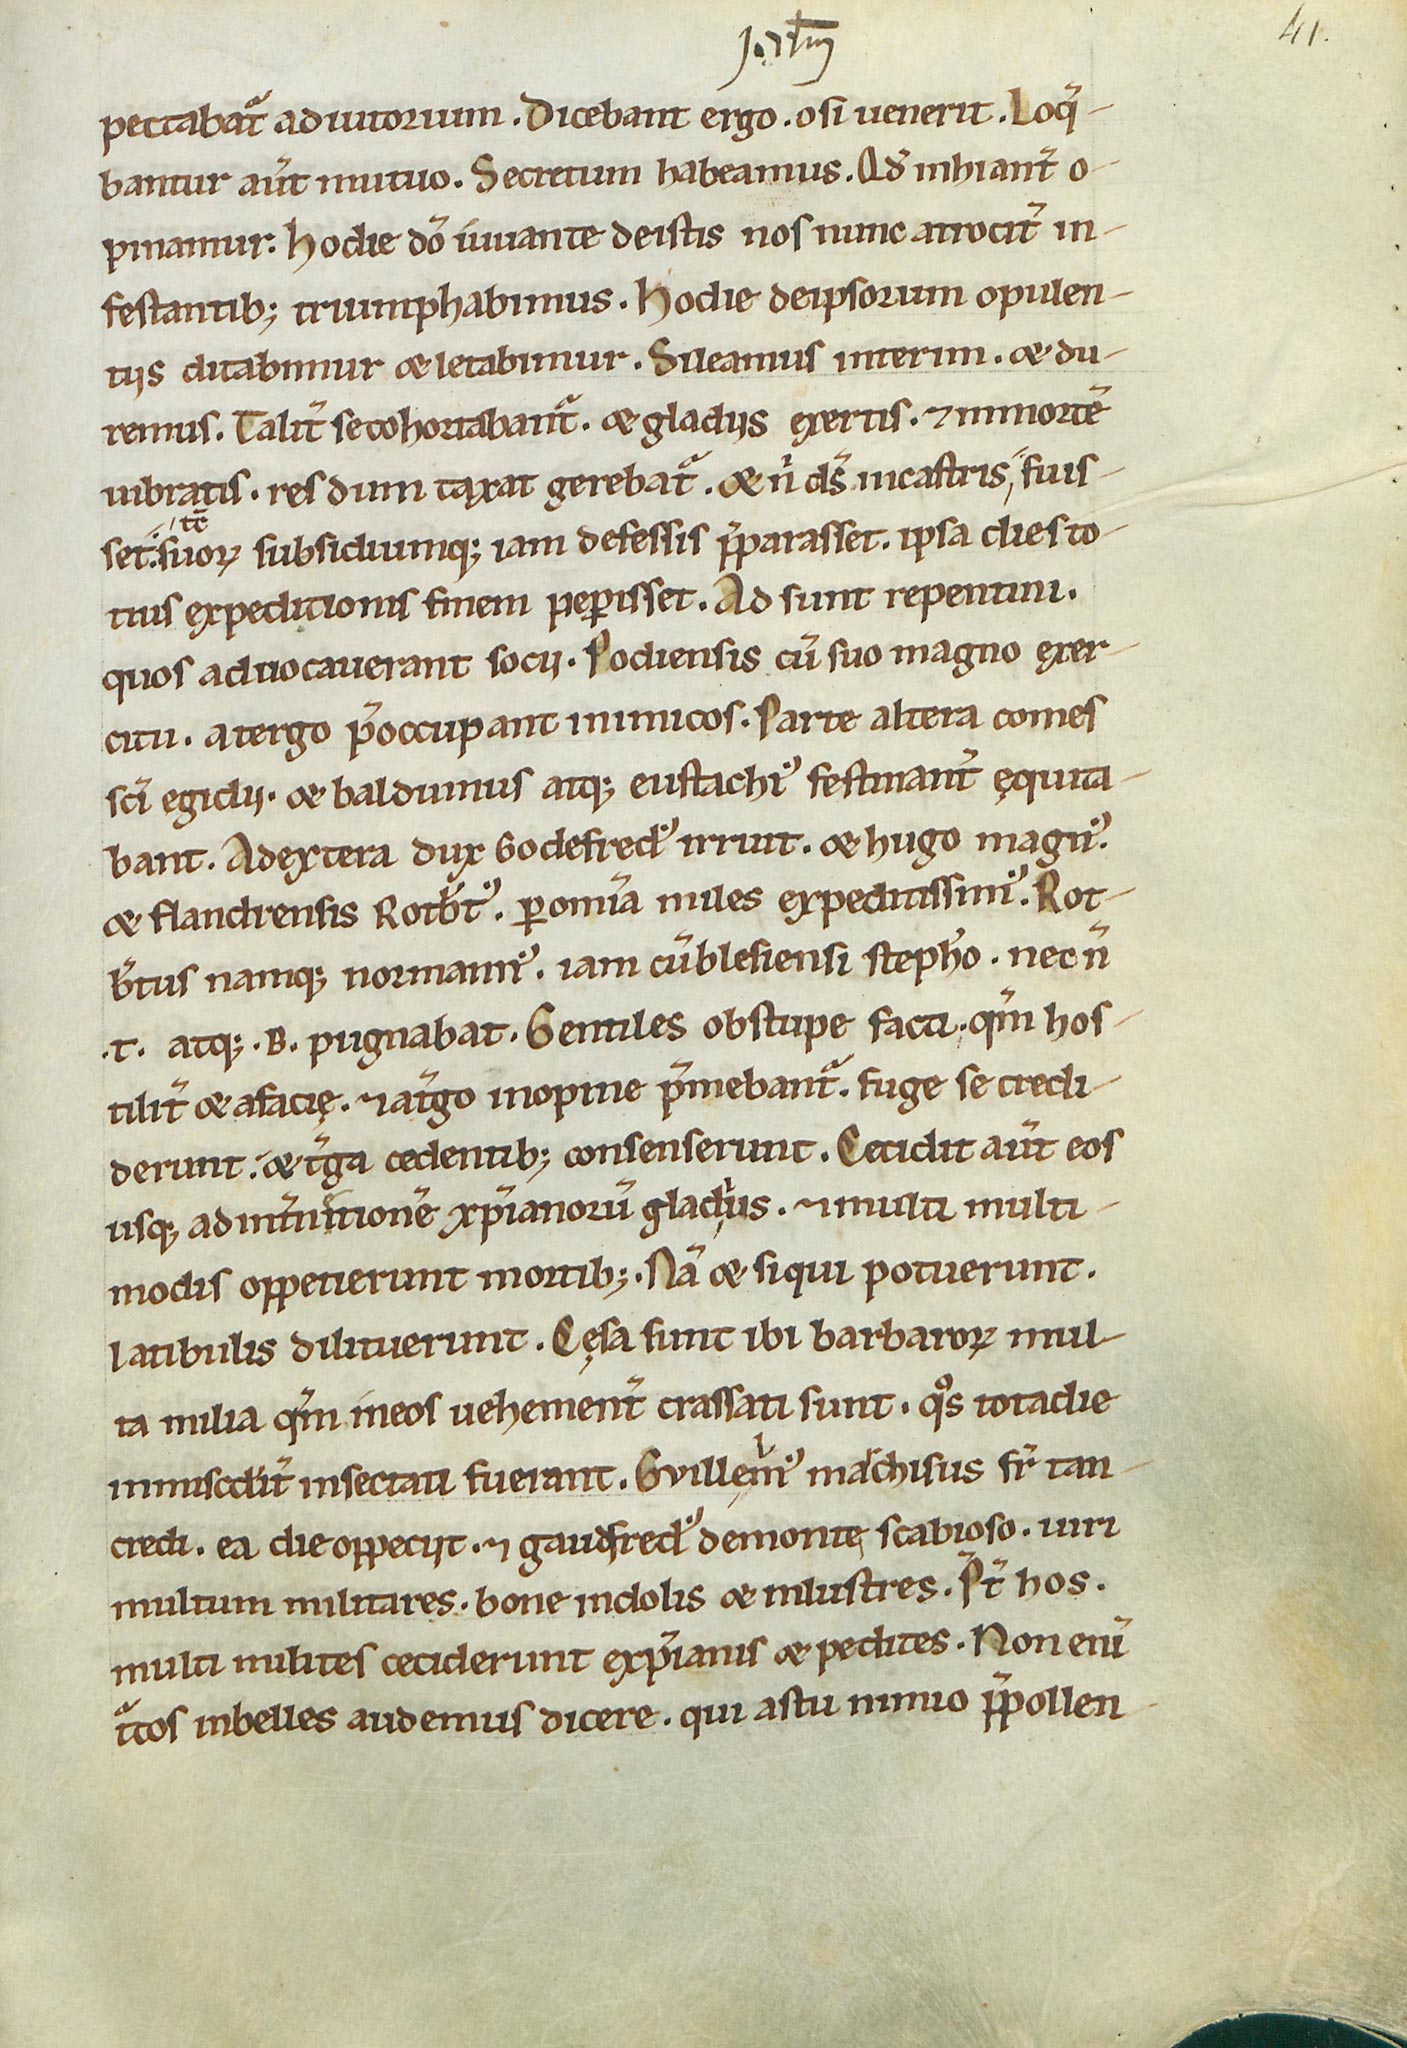 41.
pectabat᷑ adiutorium. Dicebant ergo. o si uenerit. Loq̃-
bantur aut̃ mutuo. Secretum habeamus. Ad̃ inhiant̃ o-
pinamur. Hodie dõ iuuante deistis nos nunc atrocit̃ in-
festantib; triumphabimus. Hodie deipsorum opulen-
tiis ditabimur & letabimur. Sileamus interim. & du-
remus. Talit̃ secohortabant᷑. & gladiis exertis. ⁊ inmortẽ
uibratis. res dum taxat gerebat᷑. & n̄ ds̃ incastris, fuis-
set. suoꝝ subsidiumq; iam defessis p̃parasset. ipsa dies to-
tius expeditionis finem peꝑisset. Ad sunt repentini.
quos aduocauerant socii. Podiensis cũ suo magno exer-
citu. atergo p̃occupant inimicos. Parte altera comes
sc̃i egidii. & balduinus atq; eustachi᾽ festinant̃ ęquita-
bant. Adextera dux Godefred᾽ irruit. & hugo magn᾽.
& flandrensis Rotb̃t᾽. ꝑ om̃ia miles expeditissim᾽. Rot-
b̃tus namq; normann᾽. iam cũ blesiensi steph̃o. nec n̄
.t. atq; .B. pugnabat. Gentiles obstupe facti. qm̃ hos-
tilit̃ & afacię. ⁊ at̃go inopine p̃mebant᷑. fuge se credi-
derunt. & t̃ga cedentib; consenserunt. Cecidit aut̃ eos
usq; ad int̃nitionẽ xp̃ianorũ gladius. ⁊ multi multi-
modis oppetierunt mortib;. Nã & siqui potuerunt.
latibulis dilituerunt. Cęsa sunt ibi barbaroꝝ mul-
ta milia qm̃ ineos uehement̃ crassati sunt. qͦs totadie
inmisc̃dit̃ insectati fuerant. Guillelm᾽ marchisus fr̃ tan-
credi. ea die oppeciit. ⁊ gaudfred᾽ demonte scabioso. uiri
multum militares. bone indolis & inlustres. Pt̃ hos.
multi milites ceciderunt exp̃ianis & pedites. Non enĩ
t᷑cos inbelles audemus dicere. qui astu nimio p̃pollen-